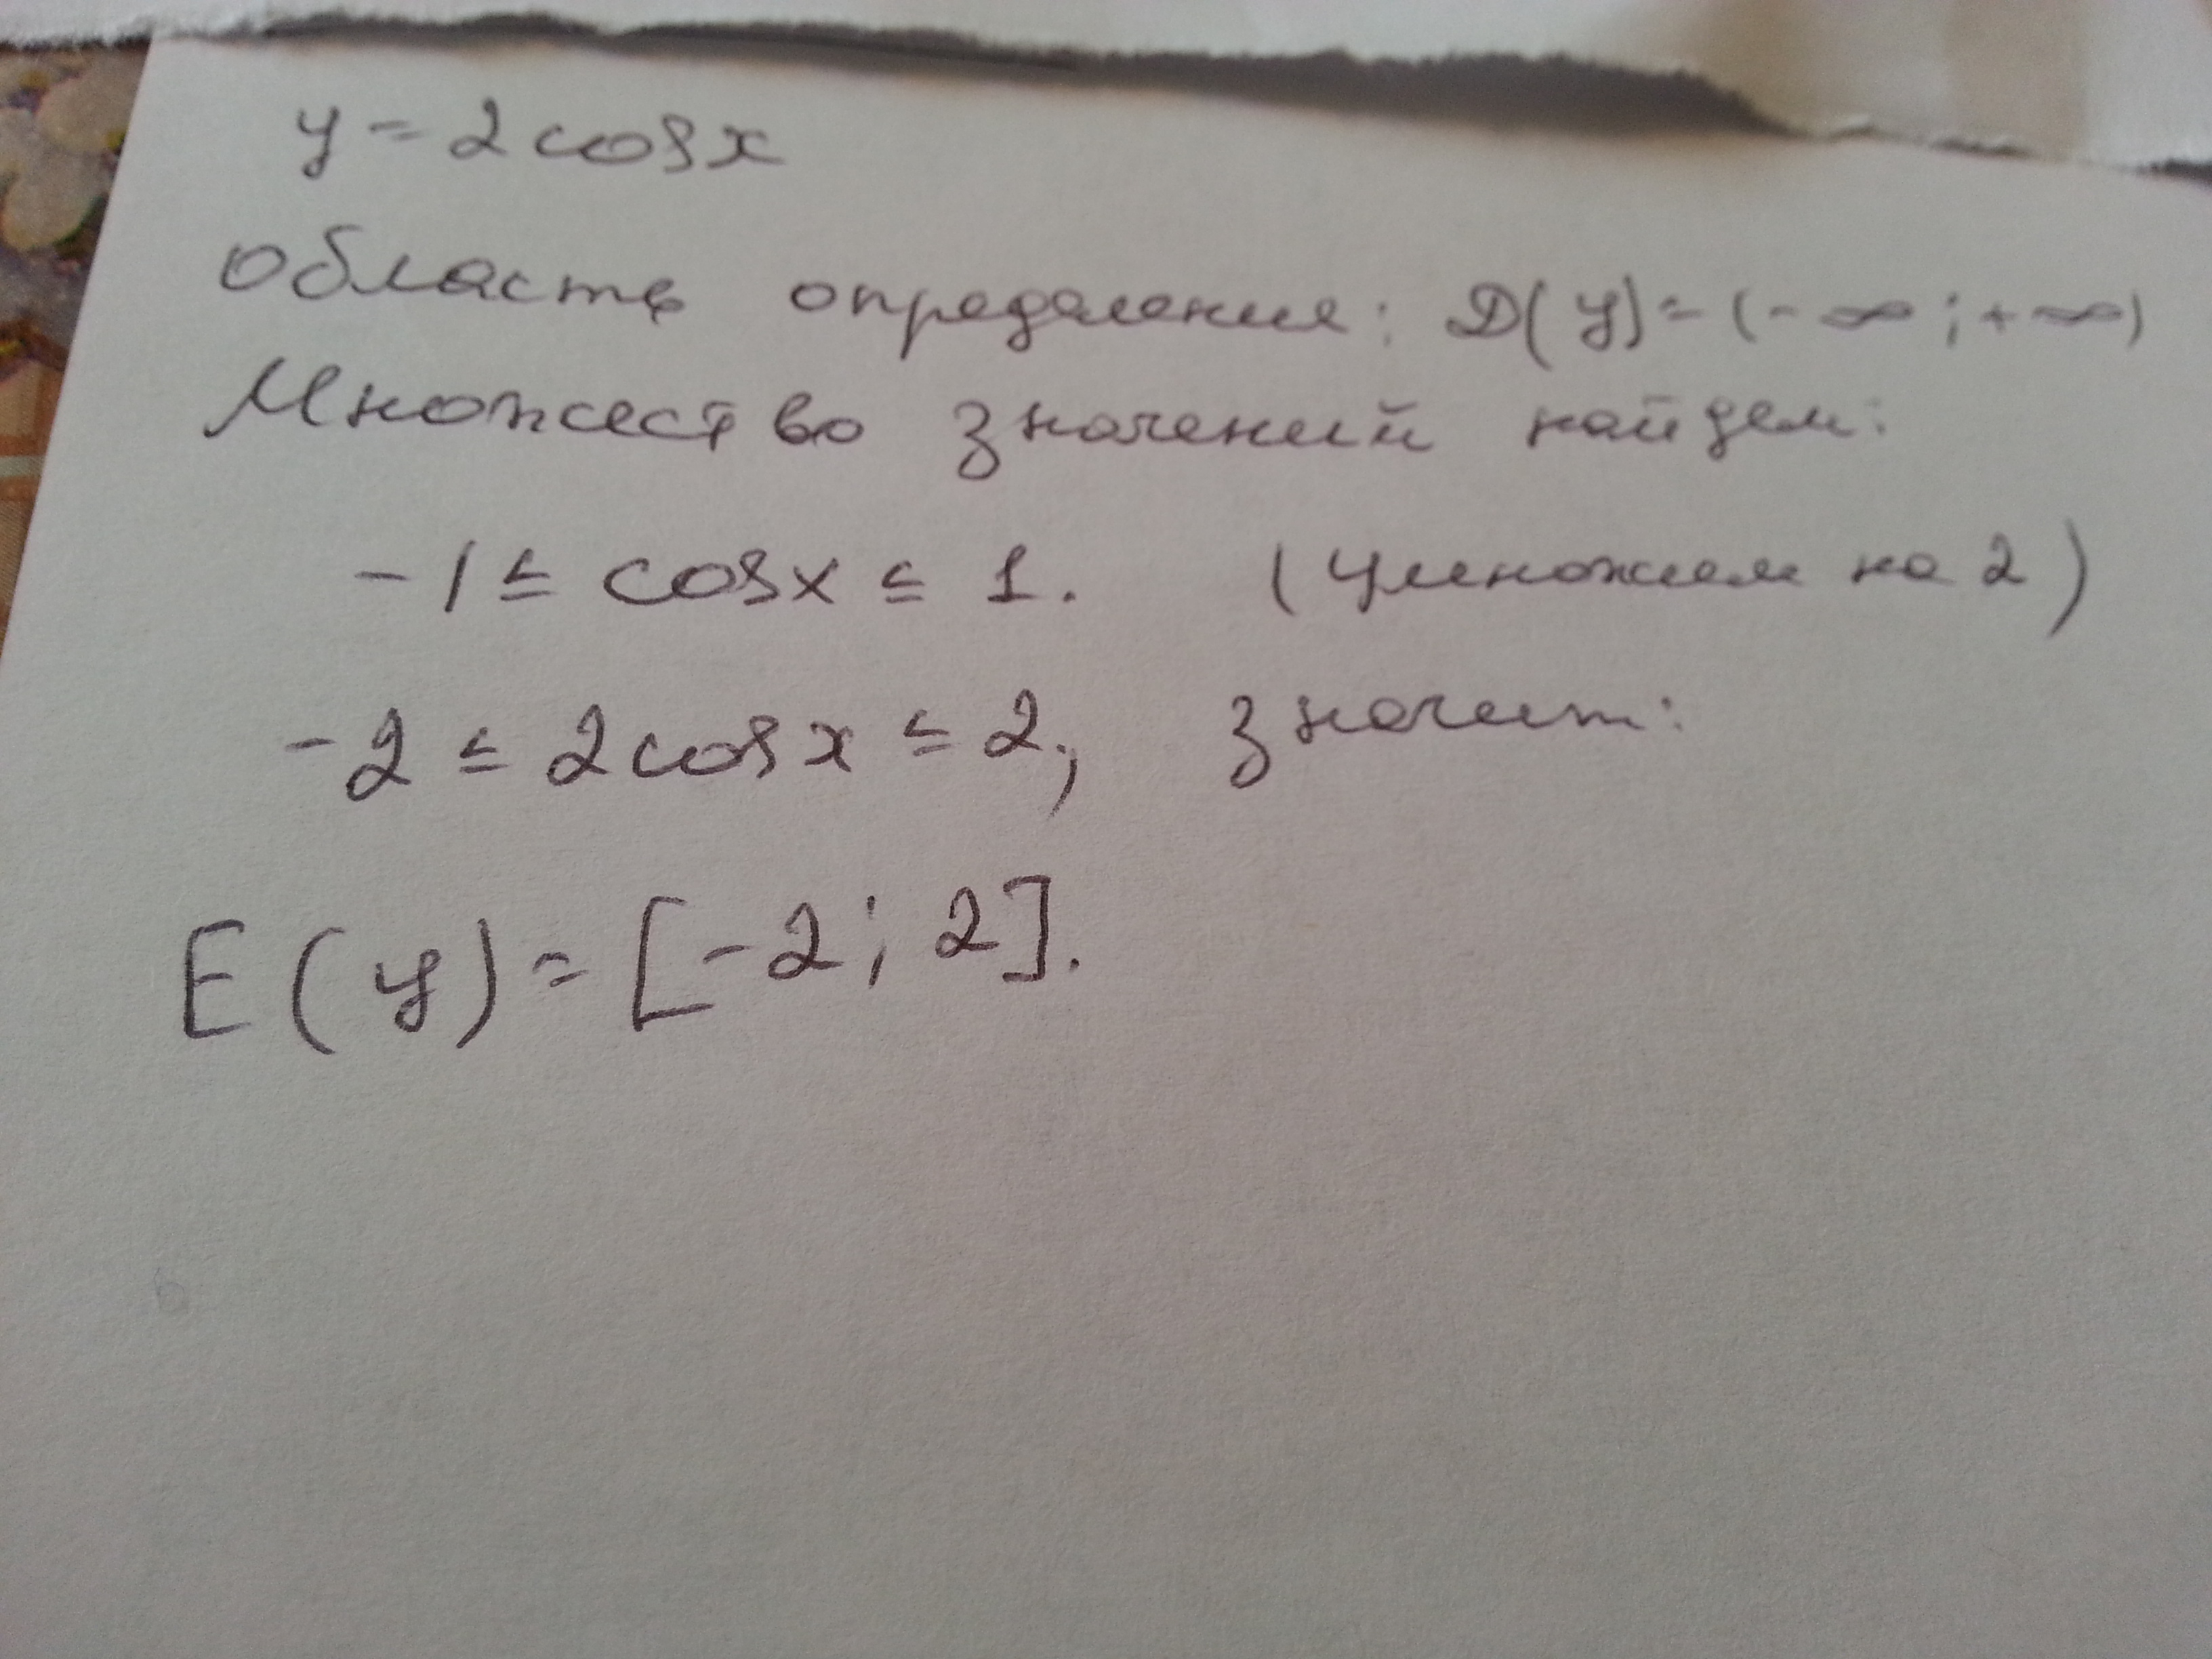 y = 2 cos x
Область определения: D(y) = (-∞; +∞)
Множество значений найдем:
-1 ≤ cos x ≤ 1. (Умножим на 2)
-2 ≤ 2 cos x ≤ 2, значит:
E(y) = [-2; 2].